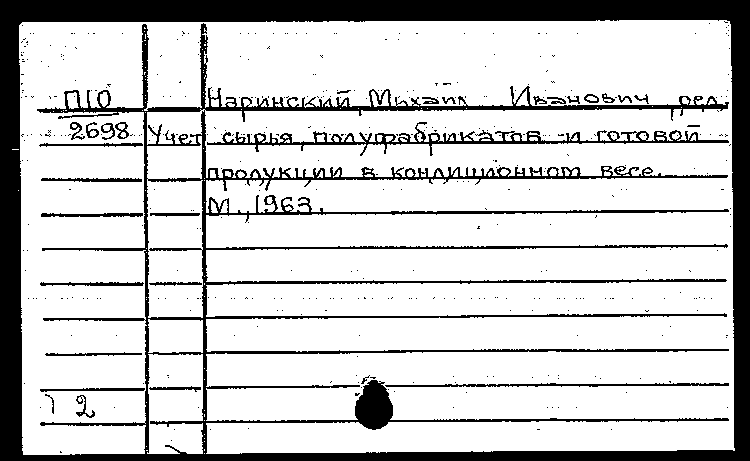 П10 Наринский, Михаил Иванович, ред.
2698 Учет сырья, полуфабрикатов и готовой
продукции в кондиционном весе.
М., 1963.
2